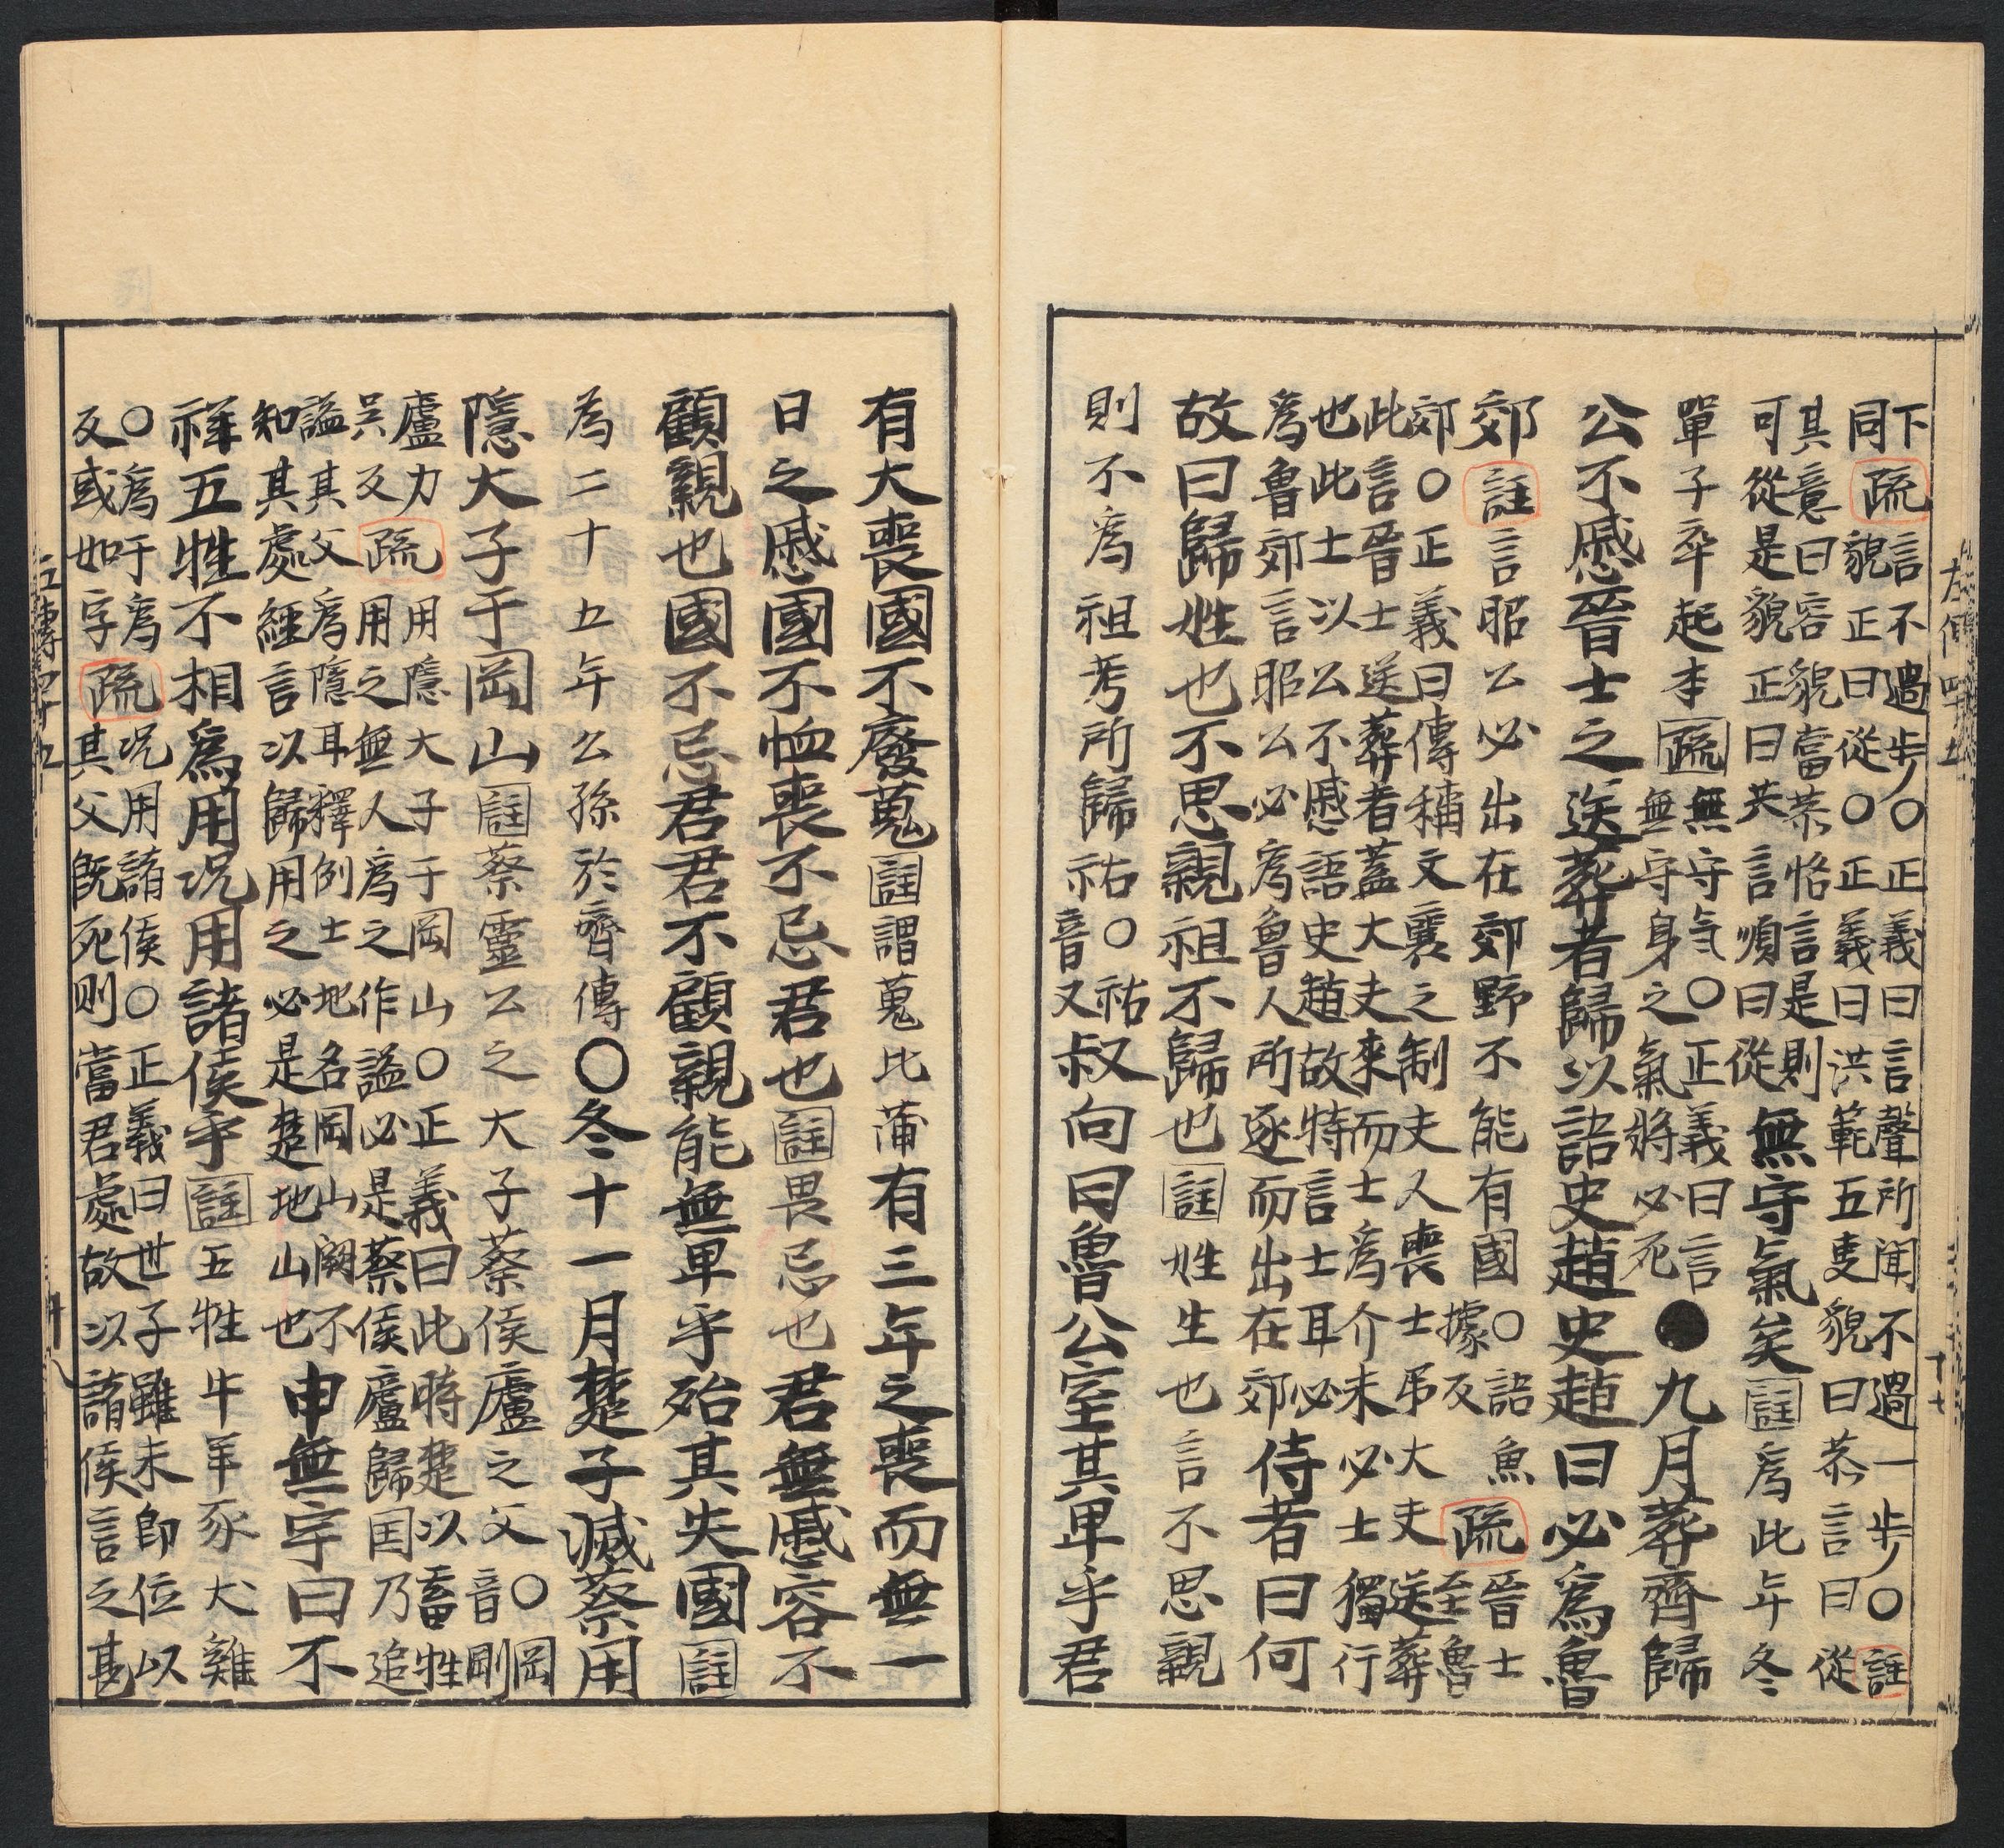 下疏言不過步〇正義曰言聲所聞不過一步〇註
同貌正曰從〇正義曰洪範五隻貌曰恭言曰從
其意曰容貌當恭恪言是則
可從是貌正曰共言順曰從無守氣矣註爲此年冬
單子卒起本疏無守氣〇正義曰言
無守身之氣將必死●九月葬齊歸
公不慼晉士之送葬者歸以語史趙史趙曰必爲魯
郊註言昭公必出在郊野不能有國〇語魚
據反疏晉士至魯
郊〇正義曰傳稱文襄之制夫人喪士弔大夫送葬
此言晉士送葬者蓋大夫來而士爲介未必士獨行
也此士以公不慼語史趙故特言士耳必
爲魯郊言昭公必爲魯人所逐而出在郊侍者曰何
故曰歸姓也不思親祖不歸也註姓生也言不思親
則不爲祖考所歸祐〇祐
音又叔向曰魯公室其卑乎君
有大喪國不廢蒐註謂蒐比蒲有三年之喪而無一
日之慼國不恤喪不忌君也註畏忌也君無慼容不
顧親也國不忌君君不顧親能無卑乎殆其失國註
為二十五年公孫於齊傳〇冬十一月楚子滅蔡用
隱大子于岡山註蔡靈公之大子蔡侯廬之父〇岡
音剛
盧力
吴反疏用隱大子于岡山〇正義曰此時楚以畜牲
用之無人爲之作謚必是蔡侯廬歸国乃追
謚其父爲隱耳釋例土地名岡山闕不
知其處經言以歸用之必是楚地山也申無宇曰不
祥五牲不相爲用况用諸侯乎註五牲牛羊豕犬雞
〇爲于爲
反或如字疏况用諸侯〇正義曰世子雖未即位以
其父既死则當君處故以諸侯言之甚